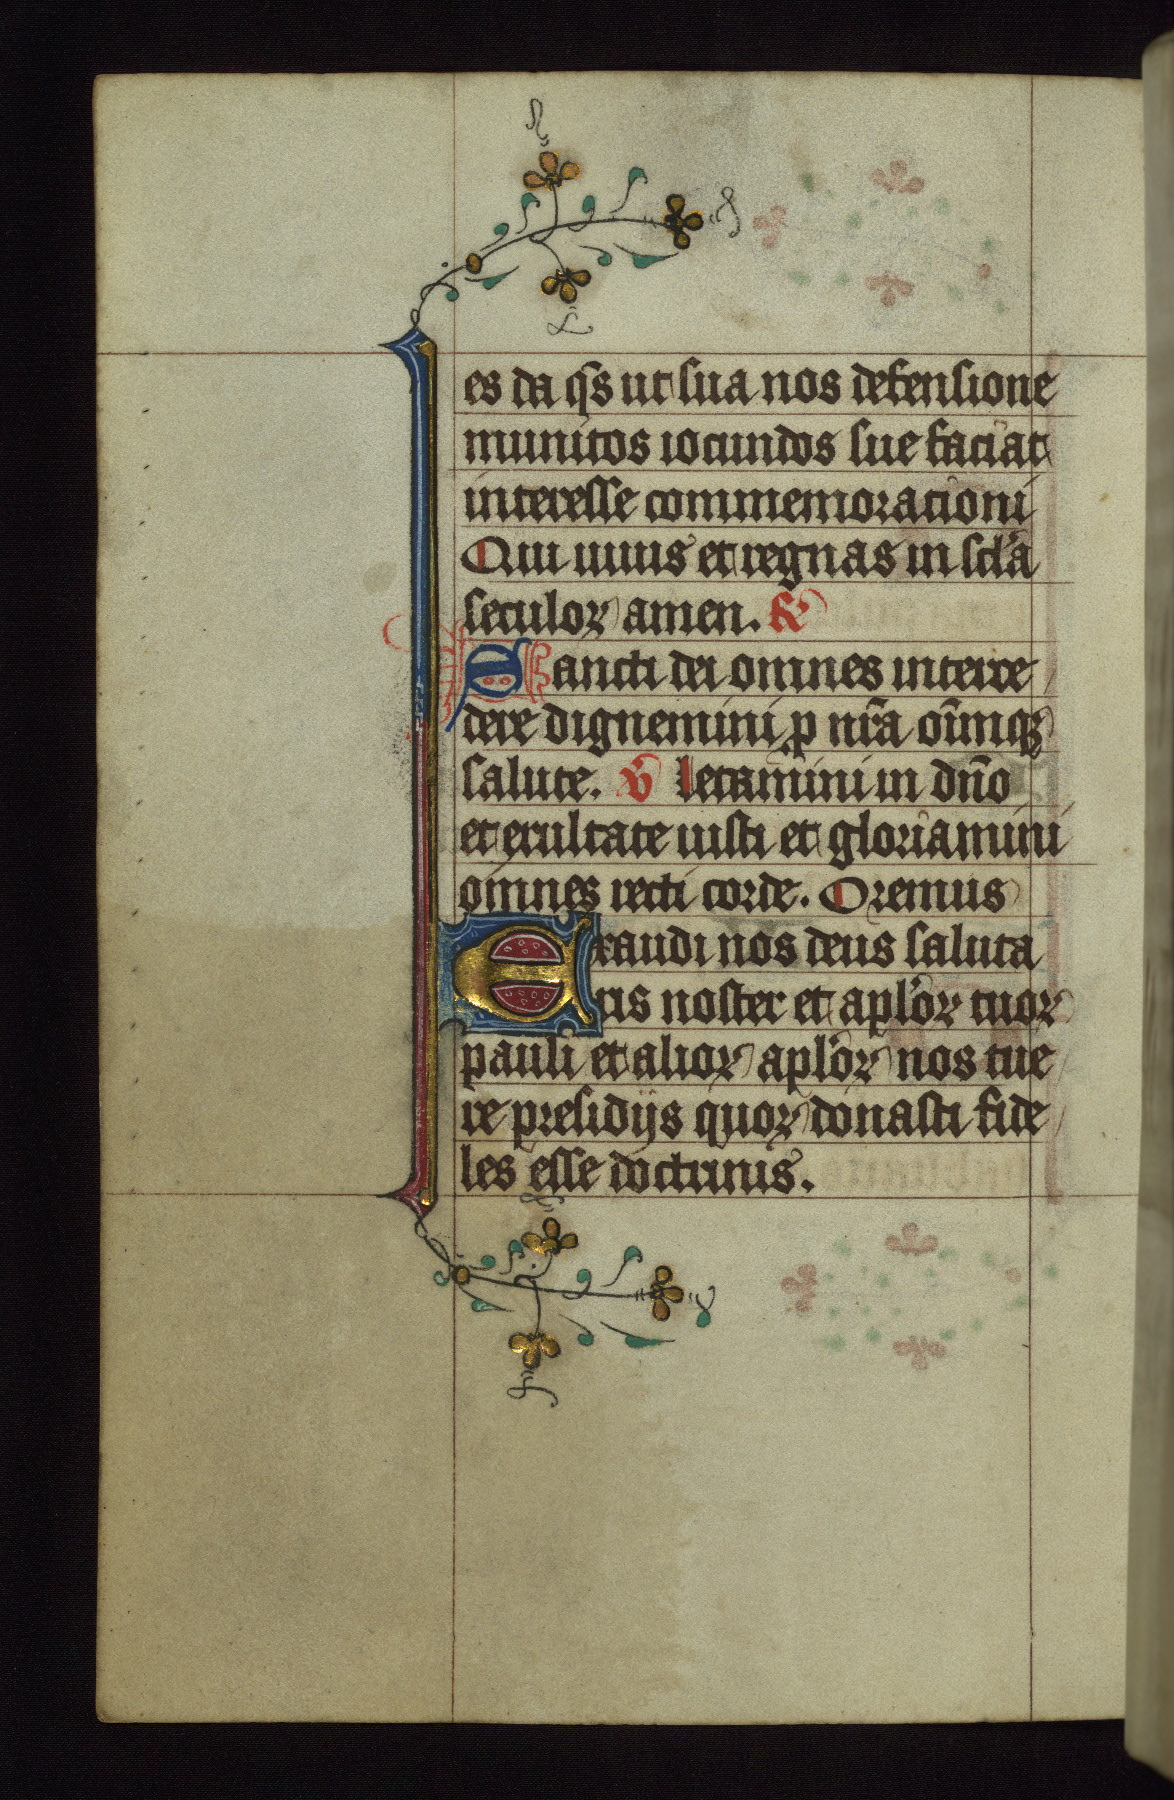 es da q̄s ut sua nos defensione
munitos iocundos sue faciat
interesse commemoracioni
Qui uiuis et regnas in sc̄la
seculoꝝ amen. &
Sancti dei omnes interce
dere dignemini p nr̄a om̄iuq̄ꝫ
salute. v̄ letamini in dn̄o
et exultate iusti et gloriamini
omnes recti corde. Oremus
Exaudi nos deus saluta
ris noster et apl̄oꝝ tuoꝝ
pauli et alioꝝ apl̄oꝝ nos tue
re presidijs quoꝝ donasti fide
les esse doctrinis.